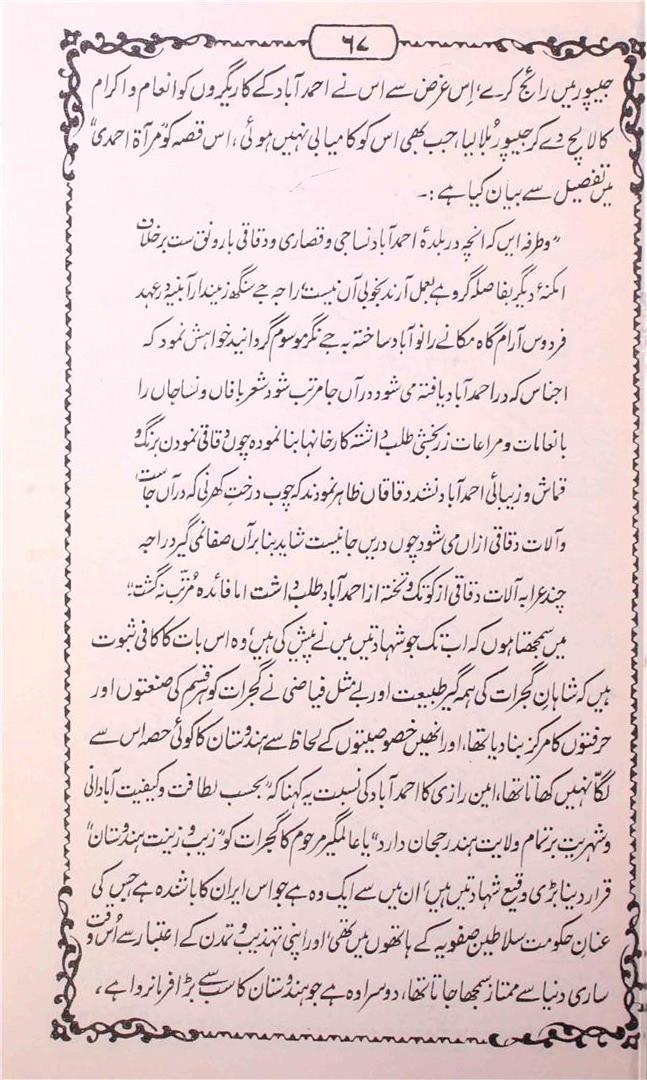 ۶۷
جیپور میں رائج کرے، اس غرض سے اس نے احمد آباد کے کاریگروں کو انعام و اکرام
کا لالچ دے کر جیپور بُلا لیا، جب بھی اس کو کامیابی نہیں ہوئی، اس قصہ کو "مرآۃ احمدی"
میں تفصیل سے بیان کیا ہے :۔
"و طرفہ ایں کہ انچہ در بلدۂ احمد آباد نساجی و قصاری و دقاقی بارونق ست برخلاف
امکنۂ دیگر بفاصلہ گروہے بعمل آرند بخوبی آں نیست، راجہ جے سنگھ زمیندار آبنیر در عہد
فردوس آرام گاہ مکانے را نو آباد ساختہ بہ جے نگر موسوم گردانید خواہش نمود کہ
اجناس کہ در احمد آباد یافتہ می شود در آں جا مرتب شود شعر بافاں و نساجاں را
بانعامات و مراعات زر بخشی طلب داشتہ کارخانہا بنا نمودہ چوں دقاقی نمودن برنگ و
قماش و زیبائی احمد آباد نشد دقاقاں ظاہر نمودند کہ چوب درخت کھرنی کہ درآں جاست
و آلات دقاقی ازاں می شود چوں دریں جا نیست شاید بنا برآں صفا نمی گیرد راجہ
چند عرابہ آلات دقاقی از کوتک و تختہ از احمد آباد طلب داشت اما فائدہ مُرتّب نہ گشت"۔
میں سمجھتا ہوں کہ اب تک جو شہادتیں میں نے پیش کی ہیں، وہ اس بات کا کافی ثبوت
ہیں کہ شاہان گجرات کی ہمہ گیر طبیعت اور بے مثل فیاضی نے گجرات کو ہر قسم کی صنعتوں اور
حرفتوں کا مرکز بنا دیا تھا، اور انھیں خصوصیتوں کے لحاظ سے ہندوستان کا کوئی حصہ اس سے
لگّا نہیں کھاتا تھا، امین رازی کا احمد آباد کی نسبت یہ کہنا کہ "بحسب لطافت و کیفیت آبادانی
و شہریت بر تمام ولایت ہند رجحان دارد" یا عالمگیر مرحوم کا گجرات کو "زیب و زینت ہندوستان"
قرار دینا بڑی وقیع شہادتیں ہیں، ان میں سے ایک وہ ہے جو اس ایران کا باشندہ ہے جس کی
عنانِ حکومت سلاطین صفویہ کے ہاتھوں میں تھی، اور اپنی تہذیب و تمدن کے اعتبار سے اُس وقت
ساری دنیا سے ممتاز سمجھا جاتا تھا، دوسرا وہ ہے جو ہندوستان کا سب سے بڑا فرمانروا ہے،